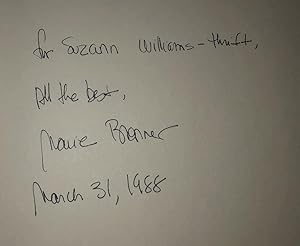 for Suzann Williams-thrift,
All the best,
Marie Brenner
March 31, 1988